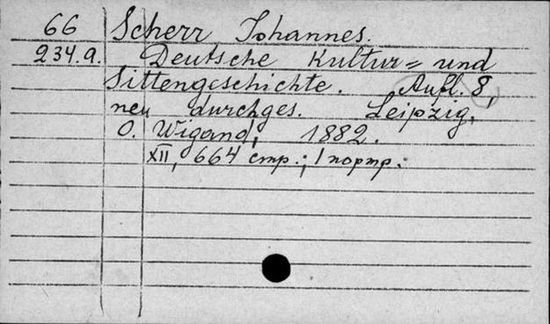 66 Scherr Johannes.
234.a. Deutsche Kultur= und
Sittengeschichte. Aufl. 8,
neu durchges. Leipzig,
O. Wigand, 1882.
XII, 664 стр.; 1 портр.